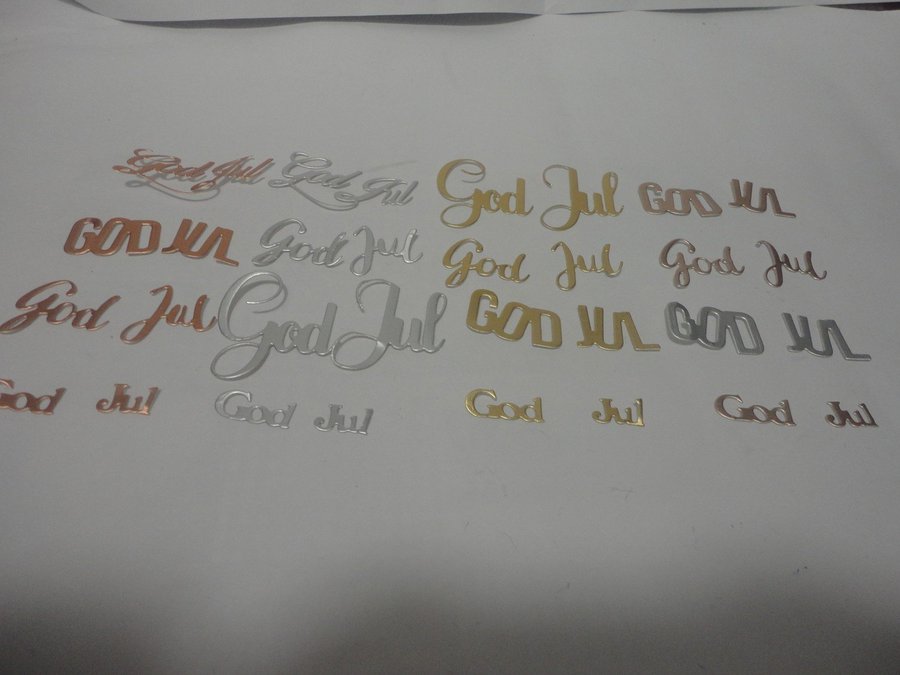 God Jul God Jul God Jul GOD JUL
GOD JUL God Jul God Jul God Jul
God Jul God Jul GOD JUL GOD JUL
God Jul God Jul God Jul God Jul